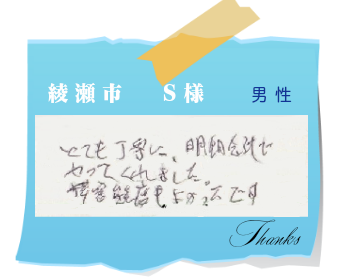 綾瀬市 S様 男性
とても丁寧に、明朗会計で
やってくれました。
接客態度もよかったです
Thanks